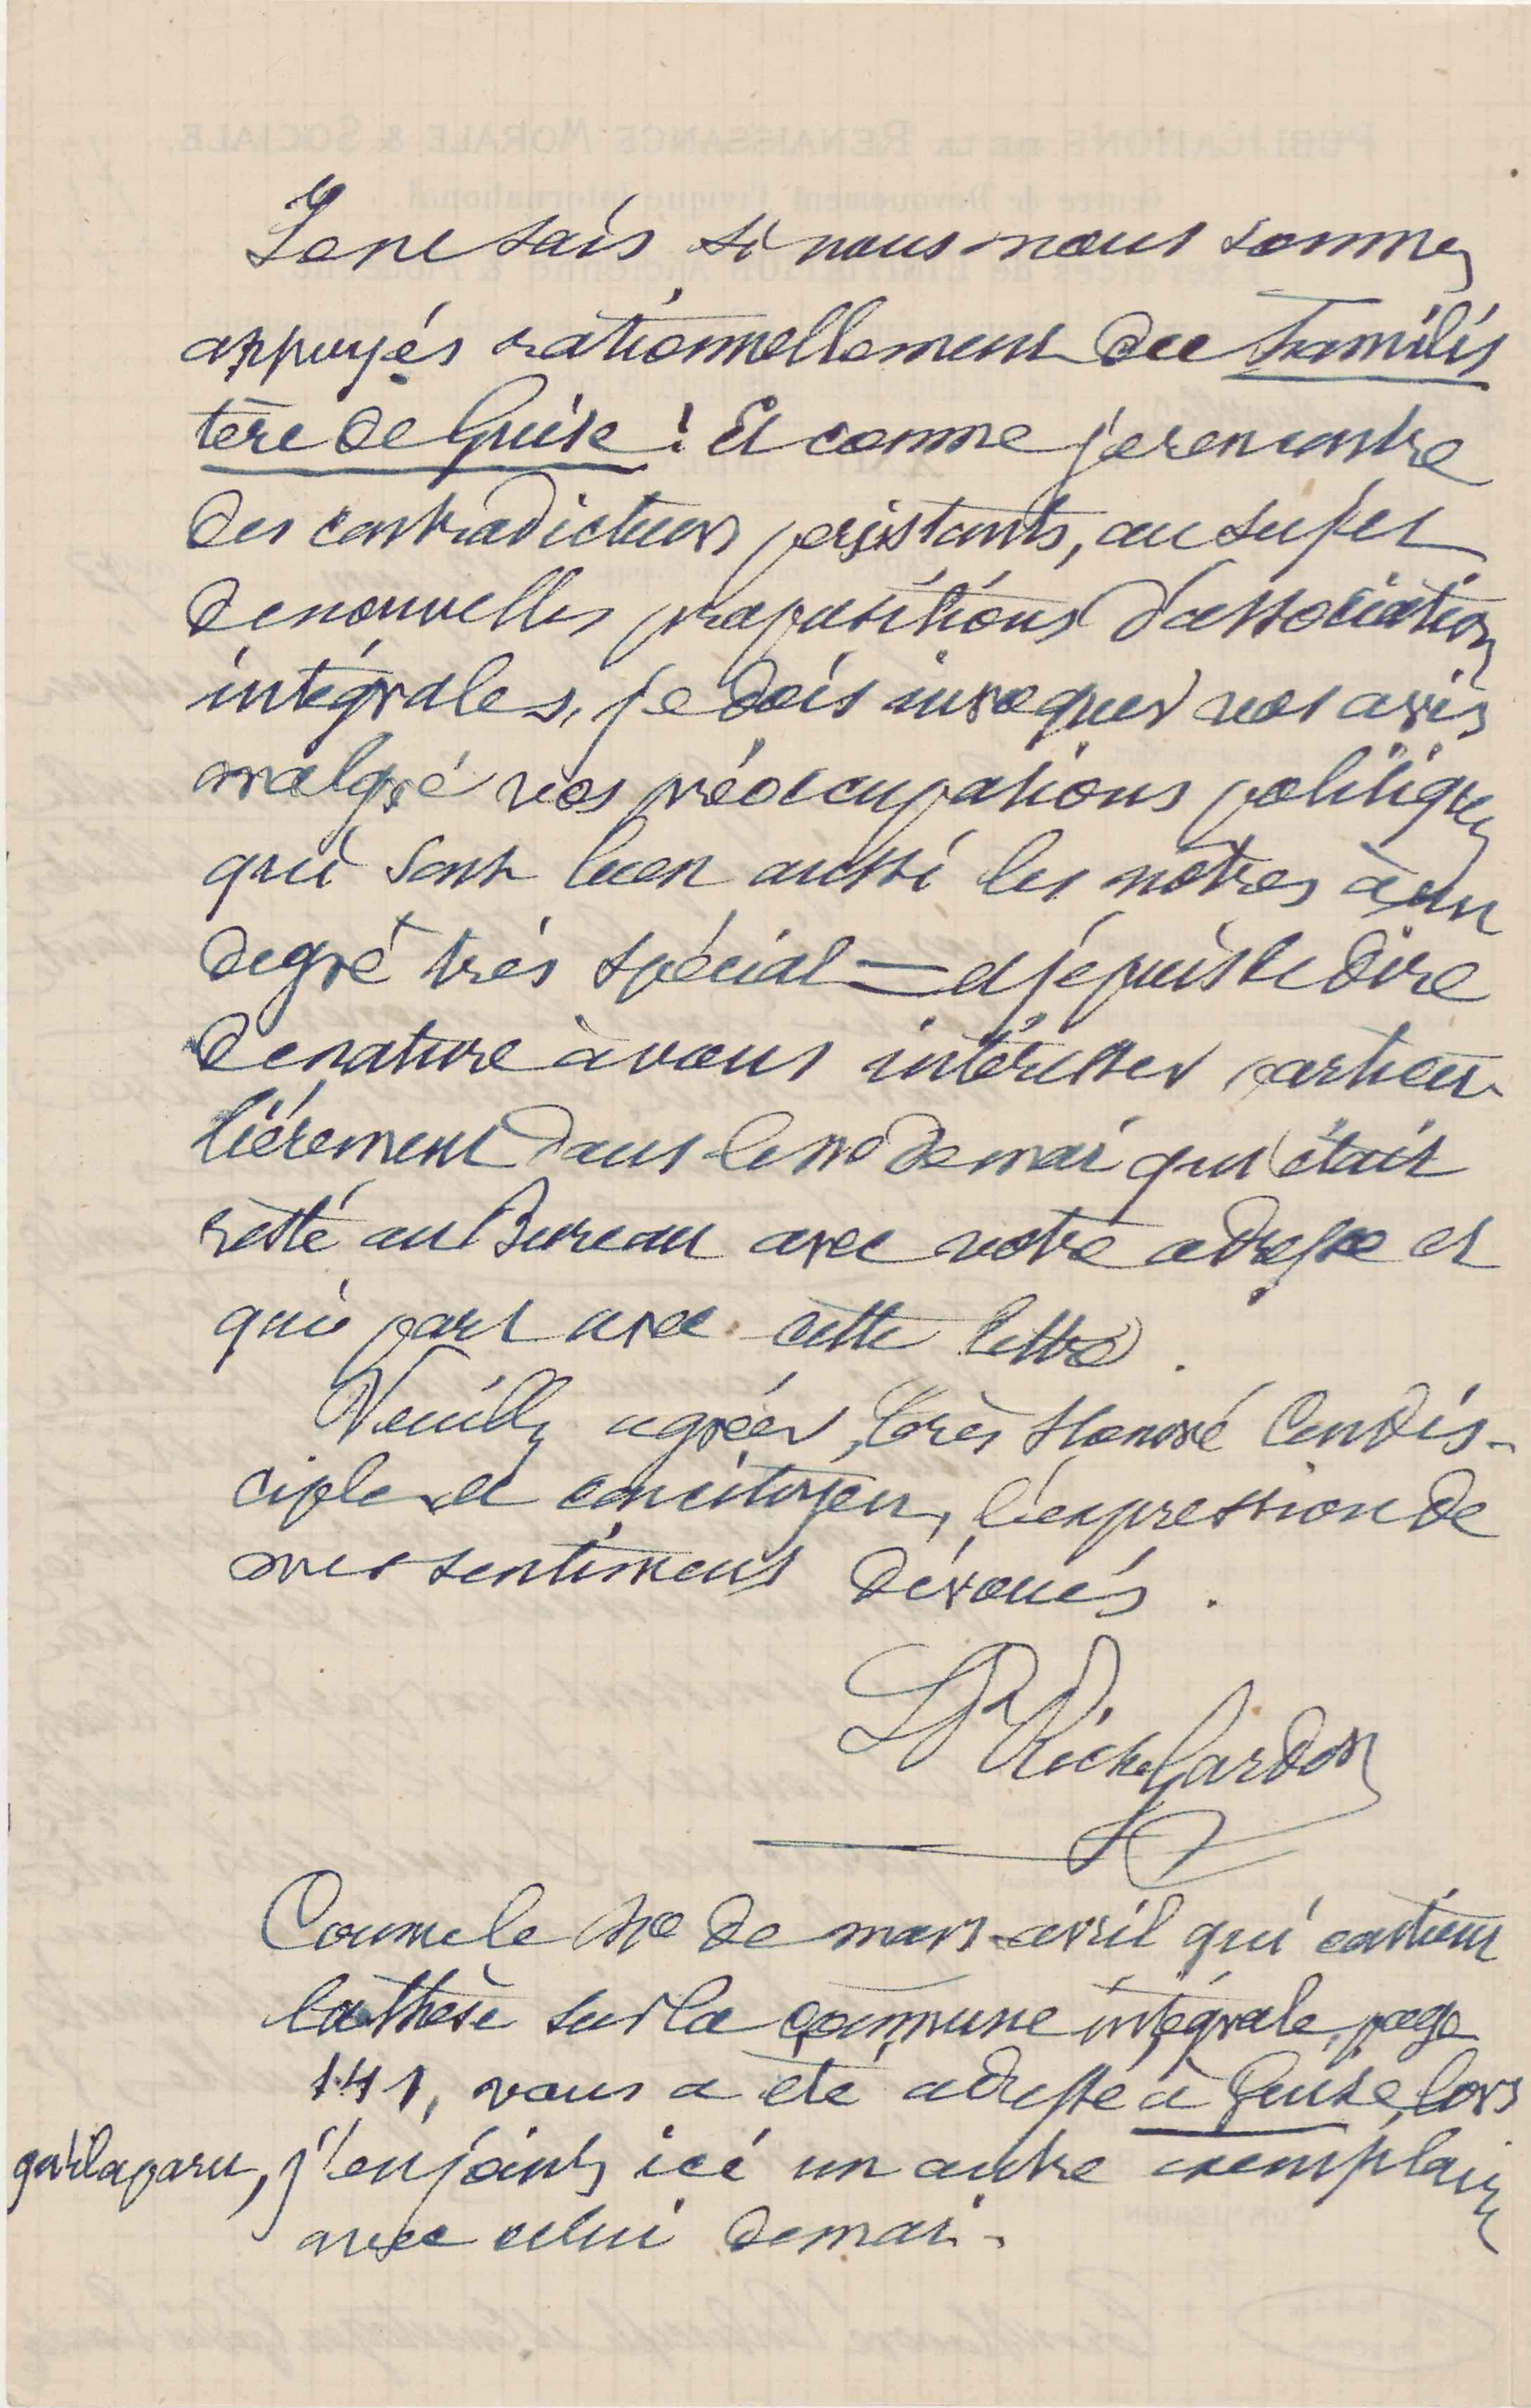 Je ne sais si nous nous sommes
appuyés rationnellement du Familis
tère de Guise ! Et comme je rencontre
des contradicteurs persistants, au sujet
de nouvelles propositions d'association
intégrales, je dois invoquer vos avis
malgré vos préoccupations politiques
qui sont bien aussi les nôtres à un
degré très spécial — et je puis le dire
de nature à vous intéresser particu
lièrement dans le no de mai qui était
resté au Bureau avec votre adresse et
qui part avec cette lettre.
Veuillez agréer, très Honoré Condis-
ciple et concitoyen, l'expression de
mes sentimens dévoués.
Comme le No de mars-avril qui contient
la thèse sur la commune intégrale, page
141, vous a été adressé à Guise, lors
qu'il a paru, j'en joints ici un autre exemplaire
avec celui de mai.